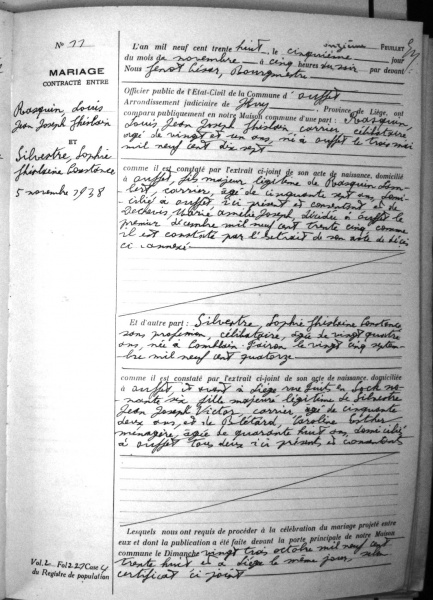 N° 11
MARIAGE
CONTRACTÉ ENTRE
Rasquin, Louis
Jean Joseph Ghislain
ET
Silvestre, Sophie
Ghislaine Constance
5 novembre 1938
onzième FEUILLET
L'an mil neuf cent trente huit, le cinquième jour
du mois de novembre à cinq heures du soir par devant
Nous Jenot César, Bourgmestre
Officier public de l'Etat-Civil de la Commune d'Ouffet
Arrondissement judiciaire de Huy, Province de Liége, ont
comparu publiquement en notre Maison commune d'une part : Rasquin,
Louis Jean Joseph Ghislain, carrier, célibataire,
âgé de vingt et un ans, né à Ouffet le trois mai
mil neuf cent dix sept
comme il est constaté par l'extrait ci-joint de son acte de naissance, domicilié
à Ouffet, fils majeur légitime de Rasquin Lam-
bert, carrier, âgé de cinquante sept ans, domi-
cilié à Ouffet ici présent et consentant et de
Marie Amélie Joseph, décédée à Ouffet le
premier décembre mil neuf cent trente cinq comme
il est constaté par l'extrait de son acte de décès
ci annexé
Et d'autre part : Silvestre, Sophie Ghislaine Constance,
sans profession, célibataire, âgée de vingt quatre
ans, née à Comblain-Fairon le vingt cinq septem-
bre mil neuf cent quatorze
comme il est constaté par l'extrait ci-joint de son acte de naissance, domiciliée
à Ouffet, et avant à Liége rue
nante six fille majeure légitime de Silvestre
Jean Joseph Victor, carrier, âgé de cinquante
deux ans, et de Caroline Esther
ménagère, âgée de quarante huit ans, domiciliés
à Ouffet tous deux ici présents et consentants
Lesquels nous ont requis de procéder à la célébration du mariage projeté entre
eux et dont la publication a été faite devant la porte principale de notre Maison
commune le Dimanche vingt trois octobre mil neuf cent
trente huit et à Liége le même jour, selon
certificat ci joint
Vol. 2 Fol 227 Case 4
du Registre de population